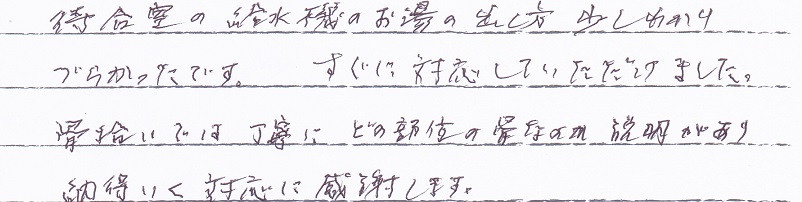 待合室の給水機のお湯の出し方少しわかり
づらかったです。 すぐに対応していただけました。
骨拾いでは丁寧にどの部位の骨なのか説明があり
納得いく対応に感謝します。